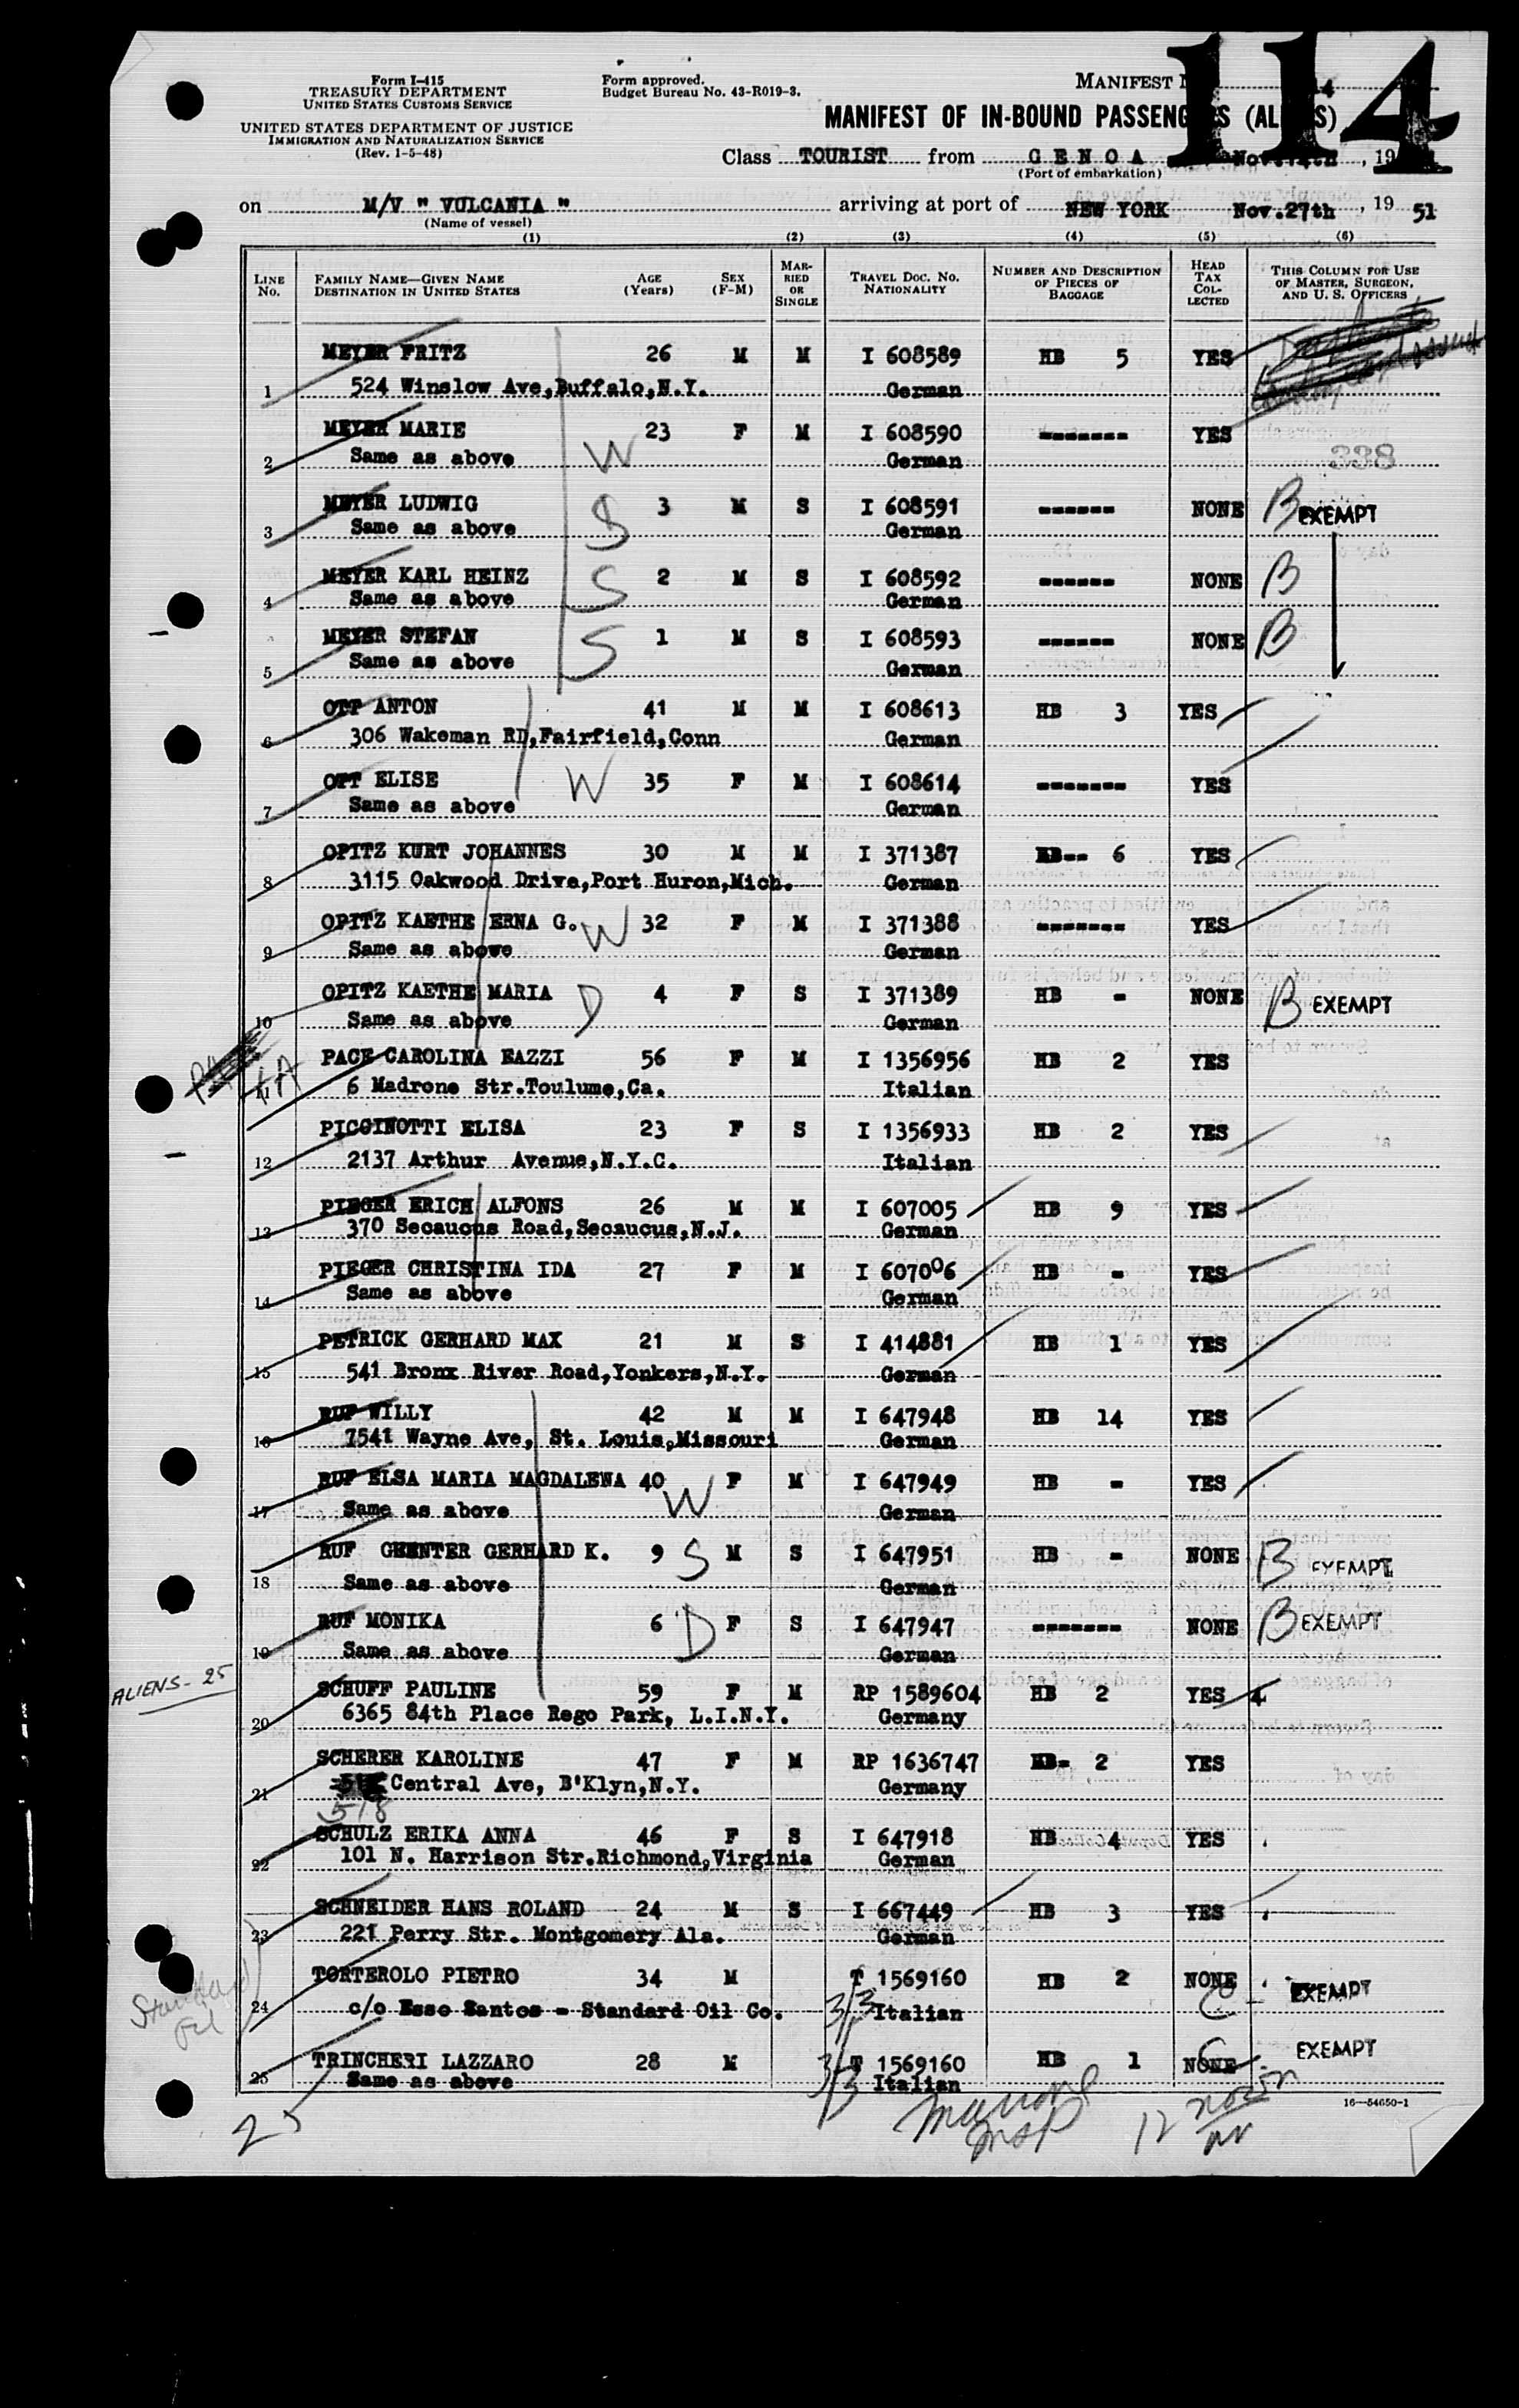 114
Form I-415
TREASURY DEPARTMENT
UNITED STATES CUSTOMS SERVICE
UNITED STATES DEPARTMENT OF JUSTICE
IMMIGRATION AND NATURALIZATION SERVICE
(Rev. 1-5-48)
Form approved.
Budget Bureau No. 43-R019-3.
MANIFEST
MANIFEST OF IN-BOUND PASSENGERS (ALIENS)
Class TOURIST from GENOA Nov. , 19
(Port of embarkation)
on M/V " VULCANIA " arriving at port of NEW YORK Nov.27th , 19 51
(Name of vessel)
(1) (2) (3) (4) (5) (6)
LINE No. FAMILY NAME—GIVEN NAME DESTINATION IN UNITED STATES AGE (Years) SEX (F-M) MARRIED OR SINGLE TRAVEL DOC. No. NATIONALITY NUMBER AND DESCRIPTION OF PIECES OF BAGGAGE HEAD TAX COLLECTED THIS COLUMN FOR USE OF MASTER, SURGEON, AND U. S. OFFICERS
MEYER FRITZ 26 M M I 608589 HB 5 YES
1 524 Winslow Ave,Buffalo,N.Y. German
MEYER MARIE 23 F M I 608590 ------- YES
2 Same as above W German 338
MEYER LUDWIG 3 M S I 608591 ------ NONE B EXEMPT
3 Same as above S German
MEYER KARL HEINZ 2 M S I 608592 ------ NONE B
4 Same as above S German
MEYER STEFAN 1 M S I 608593 ------ NONE B
5 Same as above S German
OTT ANTON 41 M M I 608613 HB 3 YES
6 306 Wakeman RD,Fairfield,Conn German
OTT ELISE W 35 F M I 608614 ------- YES
7 Same as above German
OPITZ KURT JOHANNES 30 M M I 371387 HB-- 6 YES
8 3115 Oakwood Drive,Port Huron,Mich. German
OPITZ KAETHE ERNA G. W 32 F M I 371388 ------- YES
9 Same as above German
OPITZ KAETHE MARIA D 4 F S I 371389 HB - NONE B EXEMPT
10 Same as above German
PACE CAROLINA EAZZI 56 F M I 1356956 HB 2 YES
11 6 Madrone Str.Toulume,Ca. Italian
PICCINOTTI ELISA 23 F S I 1356933 HB 2 YES
12 2137 Arthur Avenue,N.Y.C. Italian
PIEGER ERICH ALFONS 26 M M I 607005 HB 9 YES
13 370 Secaucus Road,Secaucus,N.J. German
PIEGER CHRISTINA IDA 27 F M I 607006 HB - YES
14 Same as above German
PETRICK GERHARD MAX 21 M S I 414881 HB 1 YES
15 541 Bronx River Road,Yonkers,N.Y. German
RUF WILLY 42 M M I 647948 HB 14 YES
16 7541 Wayne Ave, St. Louis,Missouri German
RUF ELSA MARIA MAGDALENA 40 W F M I 647949 HB - YES
17 Same as above German
RUF GUENTER GERHARD K. 9 S M S I 647951 HB - NONE B EXEMPT
18 Same as above German
RUF MONIKA 6 D F S I 647947 ------- NONE B EXEMPT
19 Same as above German
ALIENS - 25
SCHUFF PAULINE 59 F M RP 1589604 HB 2 YES
20 6365 84th Place Rego Park, L.I.N.Y. Germany
SCHERER KAROLINE 47 F M RP 1636747 HB- 2 YES
21 Central Ave, B'Klyn,N.Y. Germany
518
SCHULZ ERIKA ANNA 46 F S I 647918 HB 4 YES
22 101 N. Harrison Str.Richmond,Virginia German
SCHNEIDER HANS ROLAND 24 M S I 667449 HB 3 YES
23 221 Perry Str. Montgomery Ala. German
TORTEROLO PIETRO 34 M T 1569160 HB 2 NONE EXEMPT
24 c/o Esso Santos - Standard Oil Co. 3/3 Italian
Standard
Oil
TRINCHERI LAZZARO 28 M T 1569160 HB 1 NONE EXEMPT
25 Same as above 3/3 Italian
25
16—54650-1